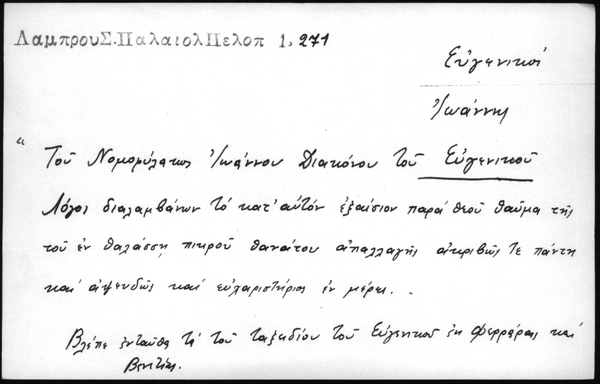 Λαμπρου Σ. Παλαιολ Πελοπ 1, 271
Εὐγενικοί
Ἰωάννης
" Τοῦ Νομοφύλακος Ἰωάννου Διακόνου τοῦ Εὐγενικοῦ
Λόγοι διαλαμβάνων τό κατ' αὐτόν ἐξαίσιον παρά θεοῦ θαῦμα τῆς
τοῦ ἐν θαλάσσῃ πικροῦ θανάτου ἀπαλλαγῆς ἀκριβῶς τε πάντη
καί ἀψευδῶς καί εὐχαριστήριος ἐν μέρει. .
Βλέπε ἐνταῦθα τά τοῦ ταξειδίου τοῦ Εὐγενικοῦ ἐκ Φερράρας καί
Βενετίας.